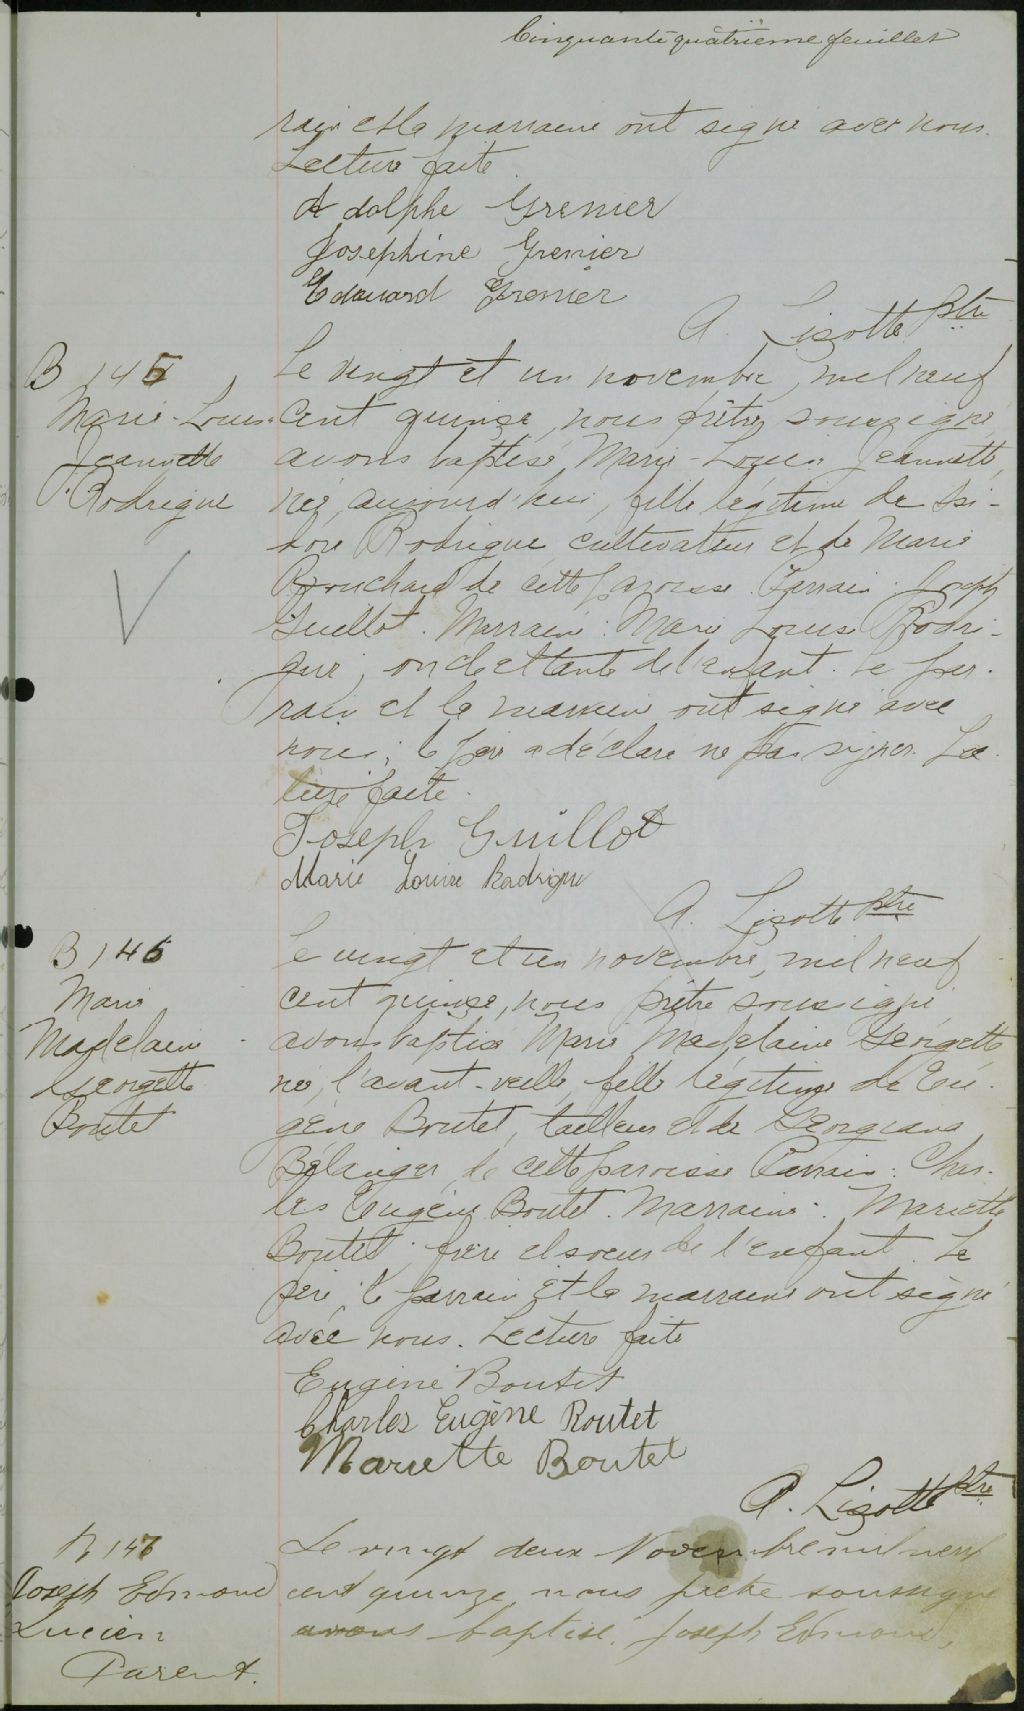 Cinquante quatrième feuillet
rain et la marraine ont signé avec nous.
Lecture faite.
Adolphe Grenier
Josephine Grenier
Edouard Grenier
A. Lizotte Ptre
B 145
Marie-Louise
Jeannette
Rodrigue
Le vingt et un novembre, mil neuf
cent quinze, nous prêtre soussigné
avons baptisé Marie-Louise Jeannette,
née aujourd'hui, fille légitime de Isi-
dore Rodrigue cultivateur et de Marie
Bouchard de cette paroisse. Parrain: Joseph
Guillot. Marraine: Marie Louise Rodri-
gue, oncle et tante de l'enfant. Le par-
rain et la marraine ont signé avec
nous; le père a déclaré ne pas signer. Lec-
ture faite.
Joseph Guillot
Marie Louise Rodrigue
A. Lizotte Ptre
B 146
Marie
Madelaine
Georgette
Boutet
Le vingt et un novembre, mil neuf
cent quinze, nous prêtre soussigné
avons baptisé Marie Madelaine Georgette
née l'avant-veille, fille légitime de Eu-
gène Boutet, tailleur et de Georgiana
Bélanger de cette paroisse. Parrain: Char-
les Eugène Boutet. Marraine: Mariette
Boutet; frère et soeur de l'enfant. Le
père, le parrain et la marraine ont signé
avec nous. Lecture faite
Eugène Boutet
Charles Eugène Boutet
Mariette Boutet
A. Lizotte Ptre
B 147
Joseph Edmond
Lucien
Parent.
Le vingt deux Novembre mil neuf
cent quinze, nous prêtre soussigné
avons baptisé, Joseph Edmond,